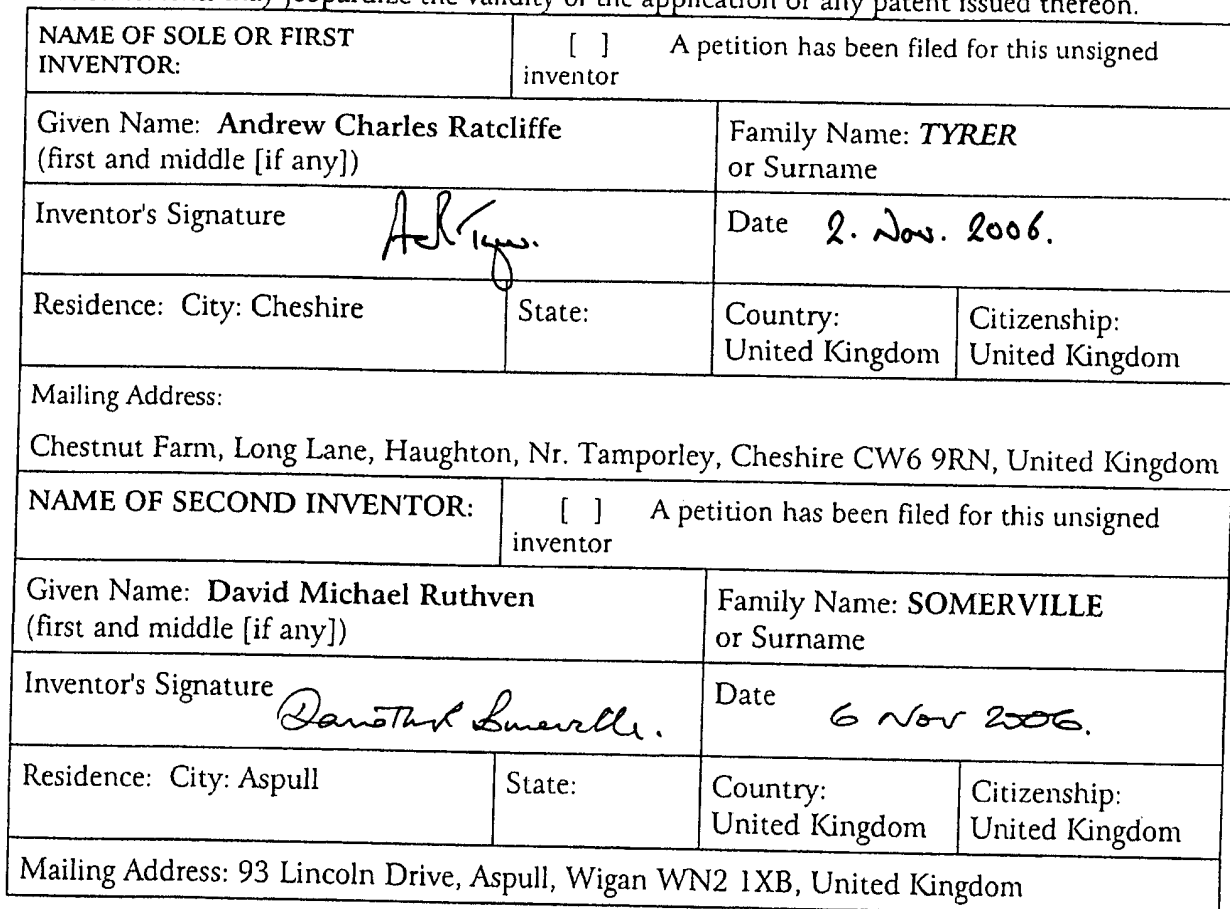 may jeopardize the validity of the application or any patent issued thereon.
NAME OF SOLE OR FIRST
INVENTOR:
[ ] A petition has been filed for this unsigned
inventor
Given Name: Andrew Charles Ratcliffe
(first and middle [if any])
Family Name: TYRER
or Surname
Inventor's Signature
Date 2. Nov. 2006.
Residence: City: Cheshire
State:
Country:
United Kingdom
Citizenship:
United Kingdom
Mailing Address:
Chestnut Farm, Long Lane, Haughton, Nr. Tamporley, Cheshire CW6 9RN, United Kingdom
NAME OF SECOND INVENTOR:
[ ] A petition has been filed for this unsigned
inventor
Given Name: David Michael Ruthven
(first and middle [if any])
Family Name: SOMERVILLE
or Surname
Inventor's Signature
Date 6 Nov 2006.
Residence: City: Aspull
State:
Country:
United Kingdom
Citizenship:
United Kingdom
Mailing Address: 93 Lincoln Drive, Aspull, Wigan WN2 1XB, United Kingdom